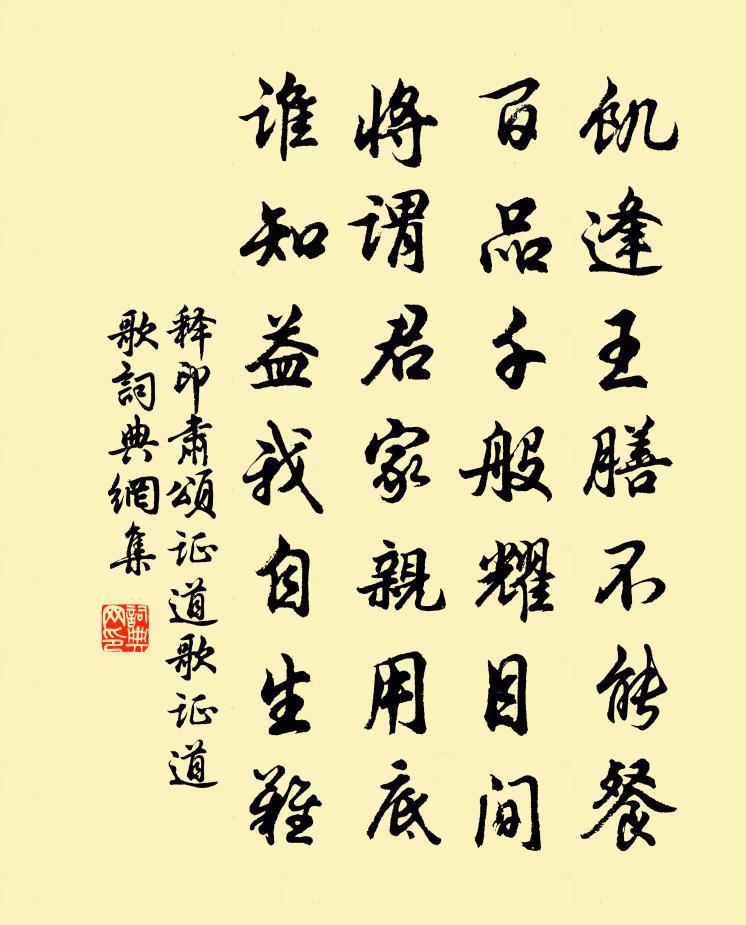 飢逢王膳不能餐
百品千般耀目间
将谓君家親用底
谁知益我自生難
释印肃頌证道歌证道
歌詞典網集
詞典網印